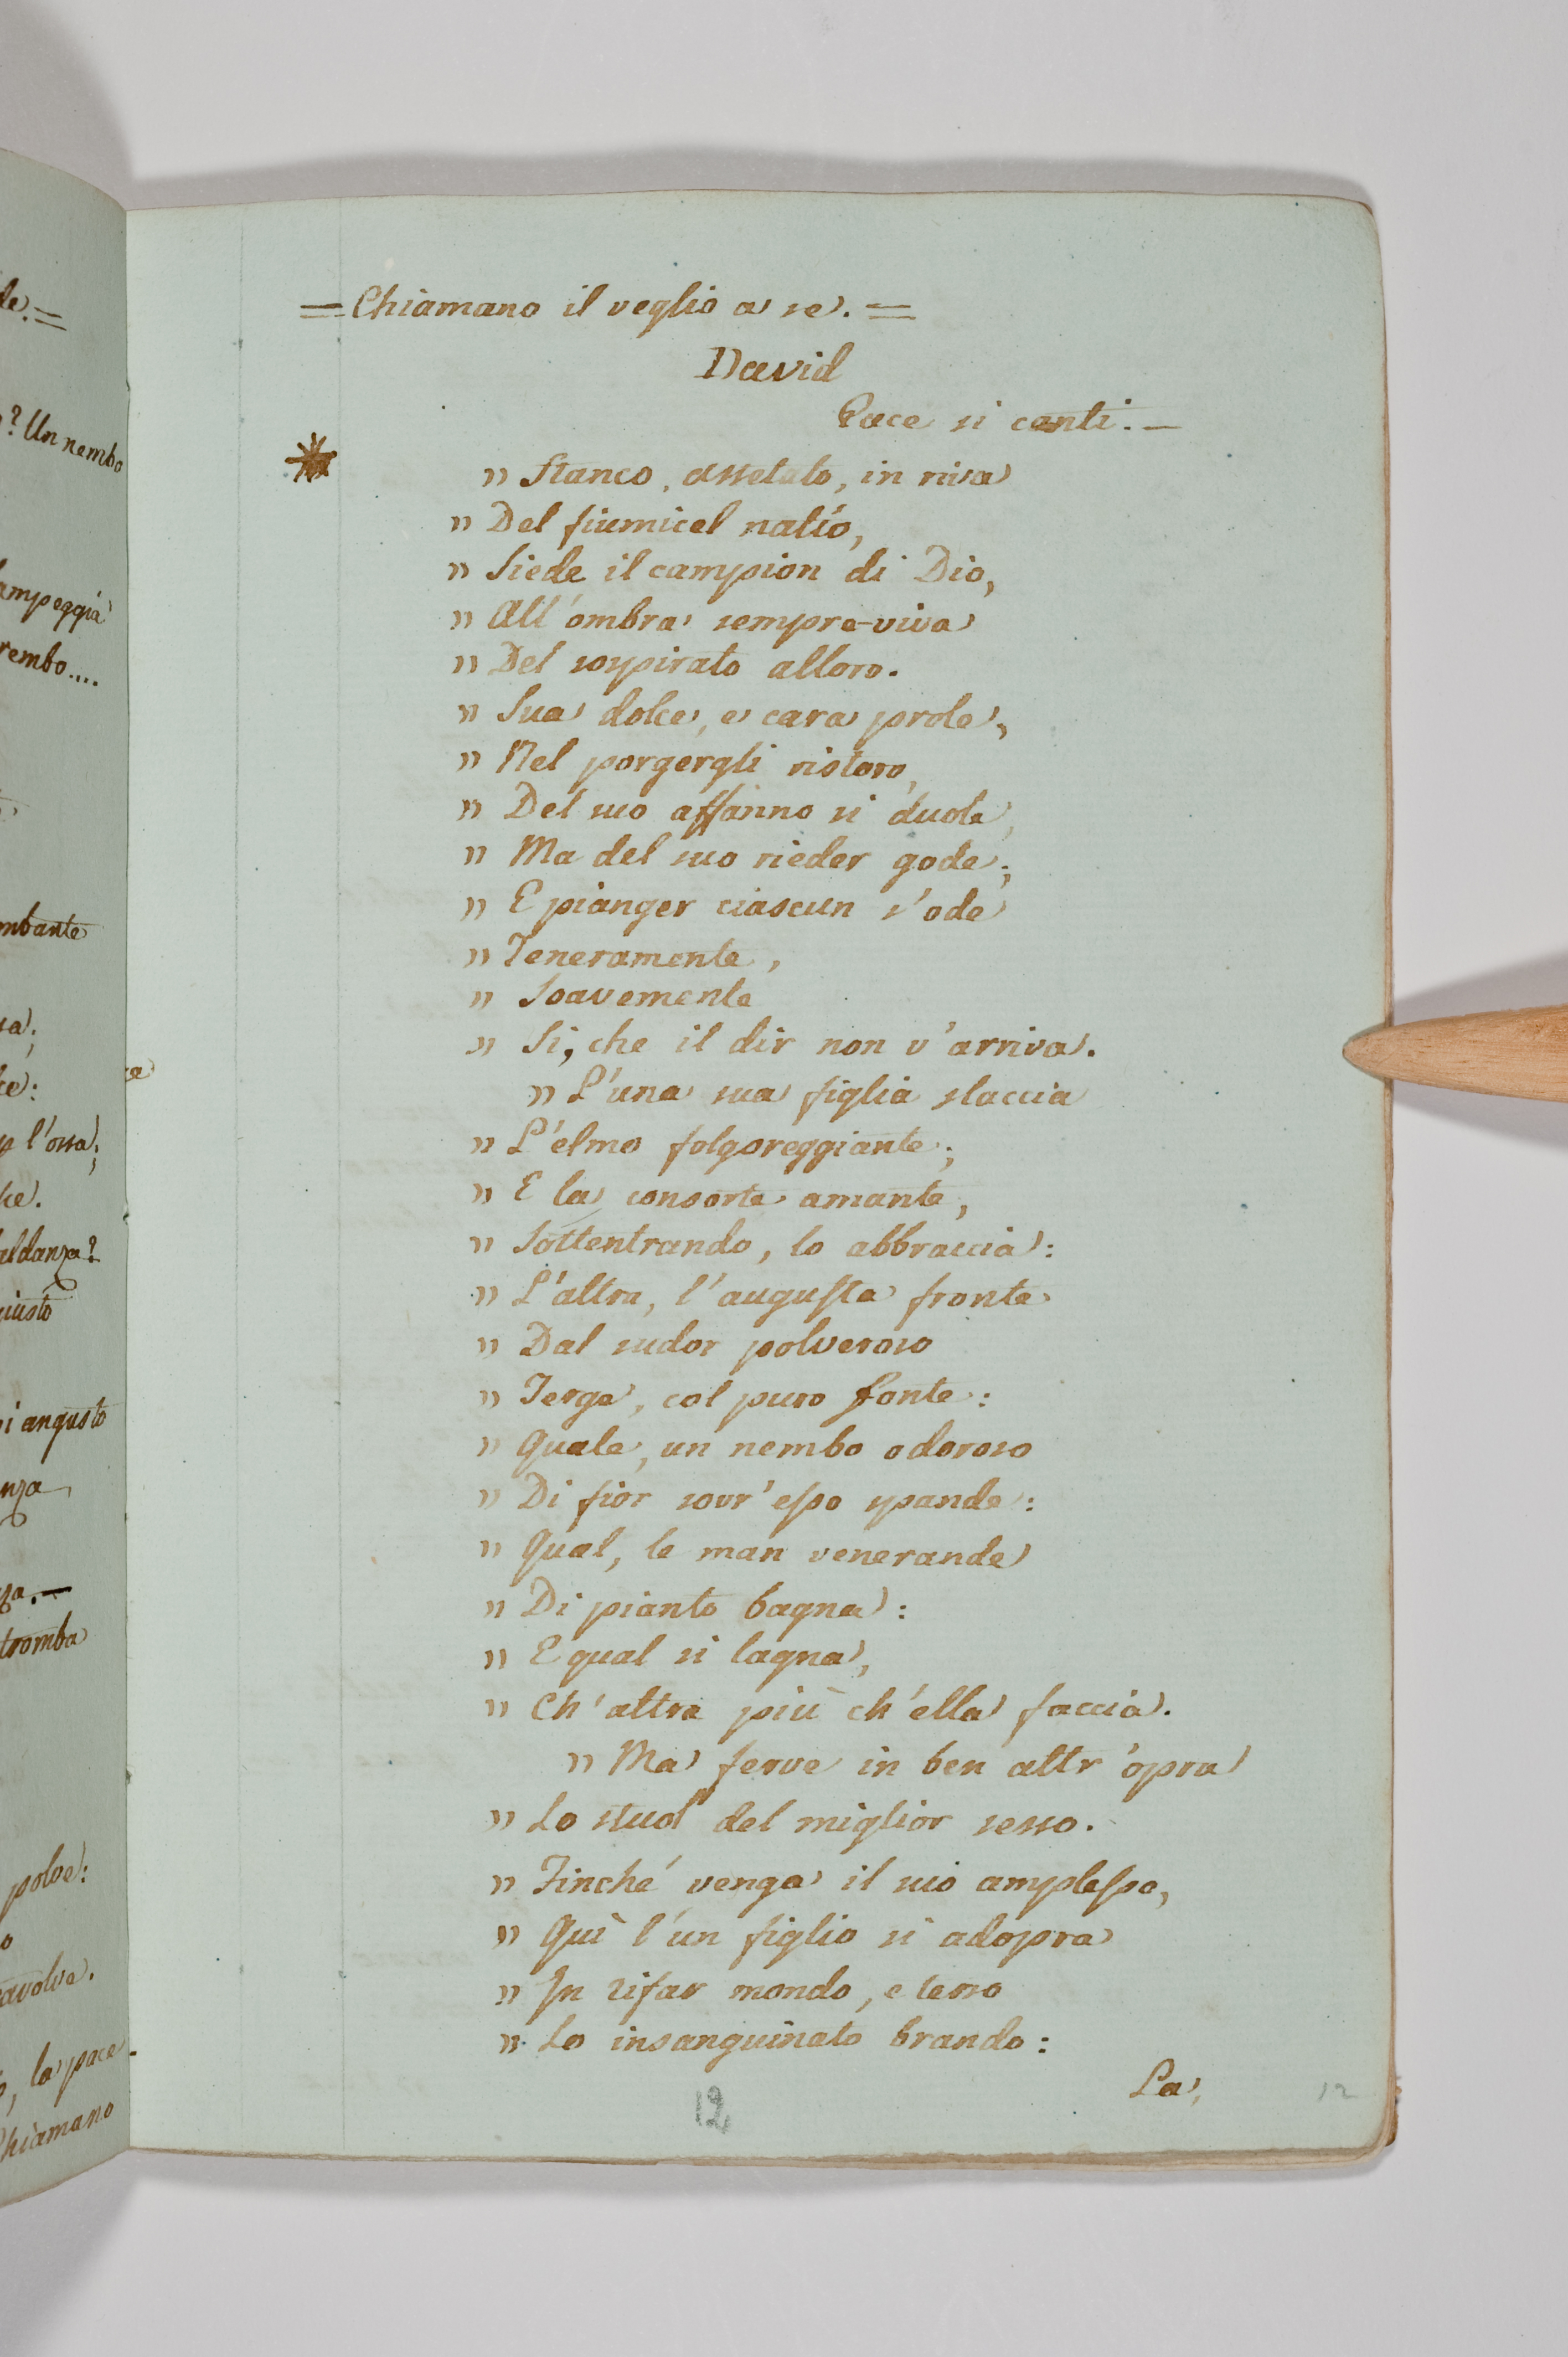 = Chiamano il veglio a se. =
David
Pace si canti. —
" Stanco, assetato, in riva
" Del fiumicel natío,
" Siede il campion di Dio,
" All'ombra sempre-viva
" Del sospirato alloro.
" Sua dolce, e cara prole,
" Nel porgergli ristoro,
" Del suo affanno si duole,
" Ma del suo rieder gode;
" E pianger ciascun s'ode
" Teneramente,
" Soavemente
" Si, che il dir non v'arriva.
" L'una sua figlia slaccia
" L'elmo folgoreggiante;
" E la consorte amante,
" Sottentrando, lo abbraccia:
" L'altra, l'augusta fronte
" Dal sudor polveroso
" Terge, col puro fonte:
" Quale, un nembo odoroso
" Di fior sovr'esso spande:
" Qual, le man venerande
" Di pianto bagna:
" E qual si lagna,
" Ch'altra più ch'ella faccia.
" Ma ferve in ben altr'opra
" Lo stuol del miglior sesso.
" Finché venga il suo amplesso,
" Quì l'un figlio si adopra
" In rifar mondo, e terso
" Lo insanguinato brando:
La,
12
12
de. =
? Un nembo
ampeggia
rembo....
mbante
l'ossa;
aldanza?
giusto
i angusto
tromba
polve:
, la pace.
Chiamano